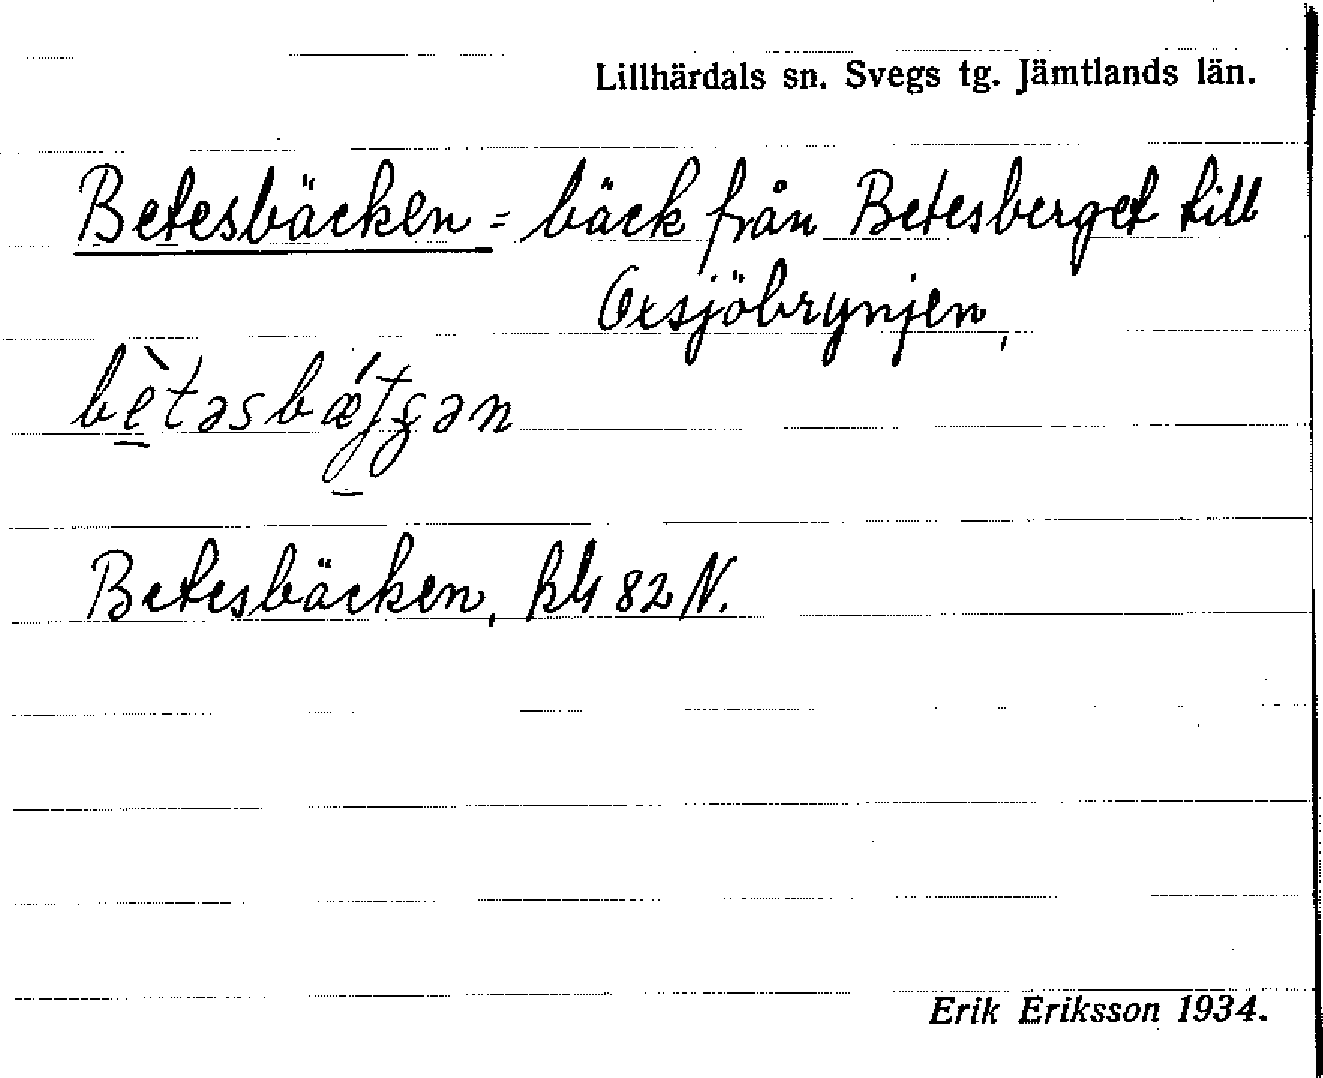 Lillhärdals sn. Svegs tg. Jämtlands län.
Betesbäcken = bäck från Betesberget till
Oxsjöbrynjen,
Betesbäcken, kbl 82 N.
Erik Eriksson 1934.